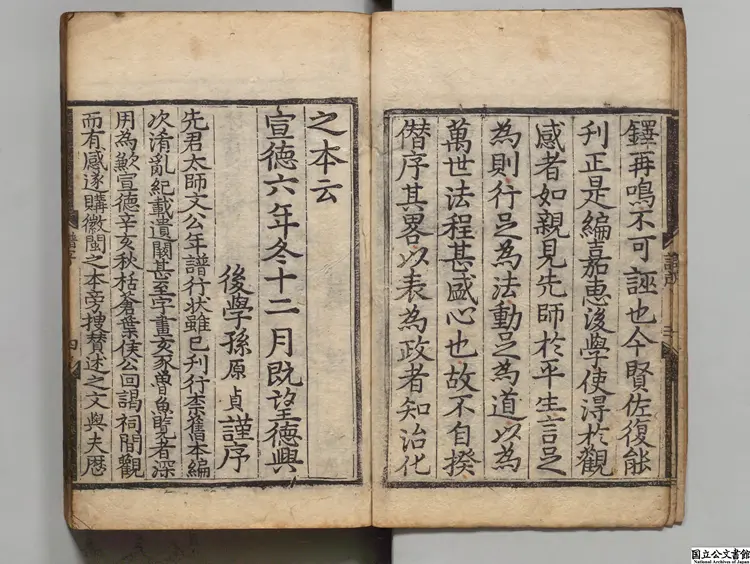 鐸再鳴不可誣也今賢佐復能
刊正是編嘉惠後學使得於觀
感者如親見先師於平生言足
為則行足為法動足為道以為
萬世法程甚盛心也故不自揆
僣序其畧以表為政者知治化
之本云
宣德六年冬十二月既望德興
後學孫原貞謹序
先君太師文公年譜行狀雖已刊行柰舊本編
次淆亂紀載遺闕甚至字畫亥豕魯魚覽者深
用為歉宣德辛亥秋栝蒼葉侯公回謁祠間觀
而有感遂購徽閩之本旁搜賛述之文與夫歷
譜序
四
国立公文書館
National Archives of Japan